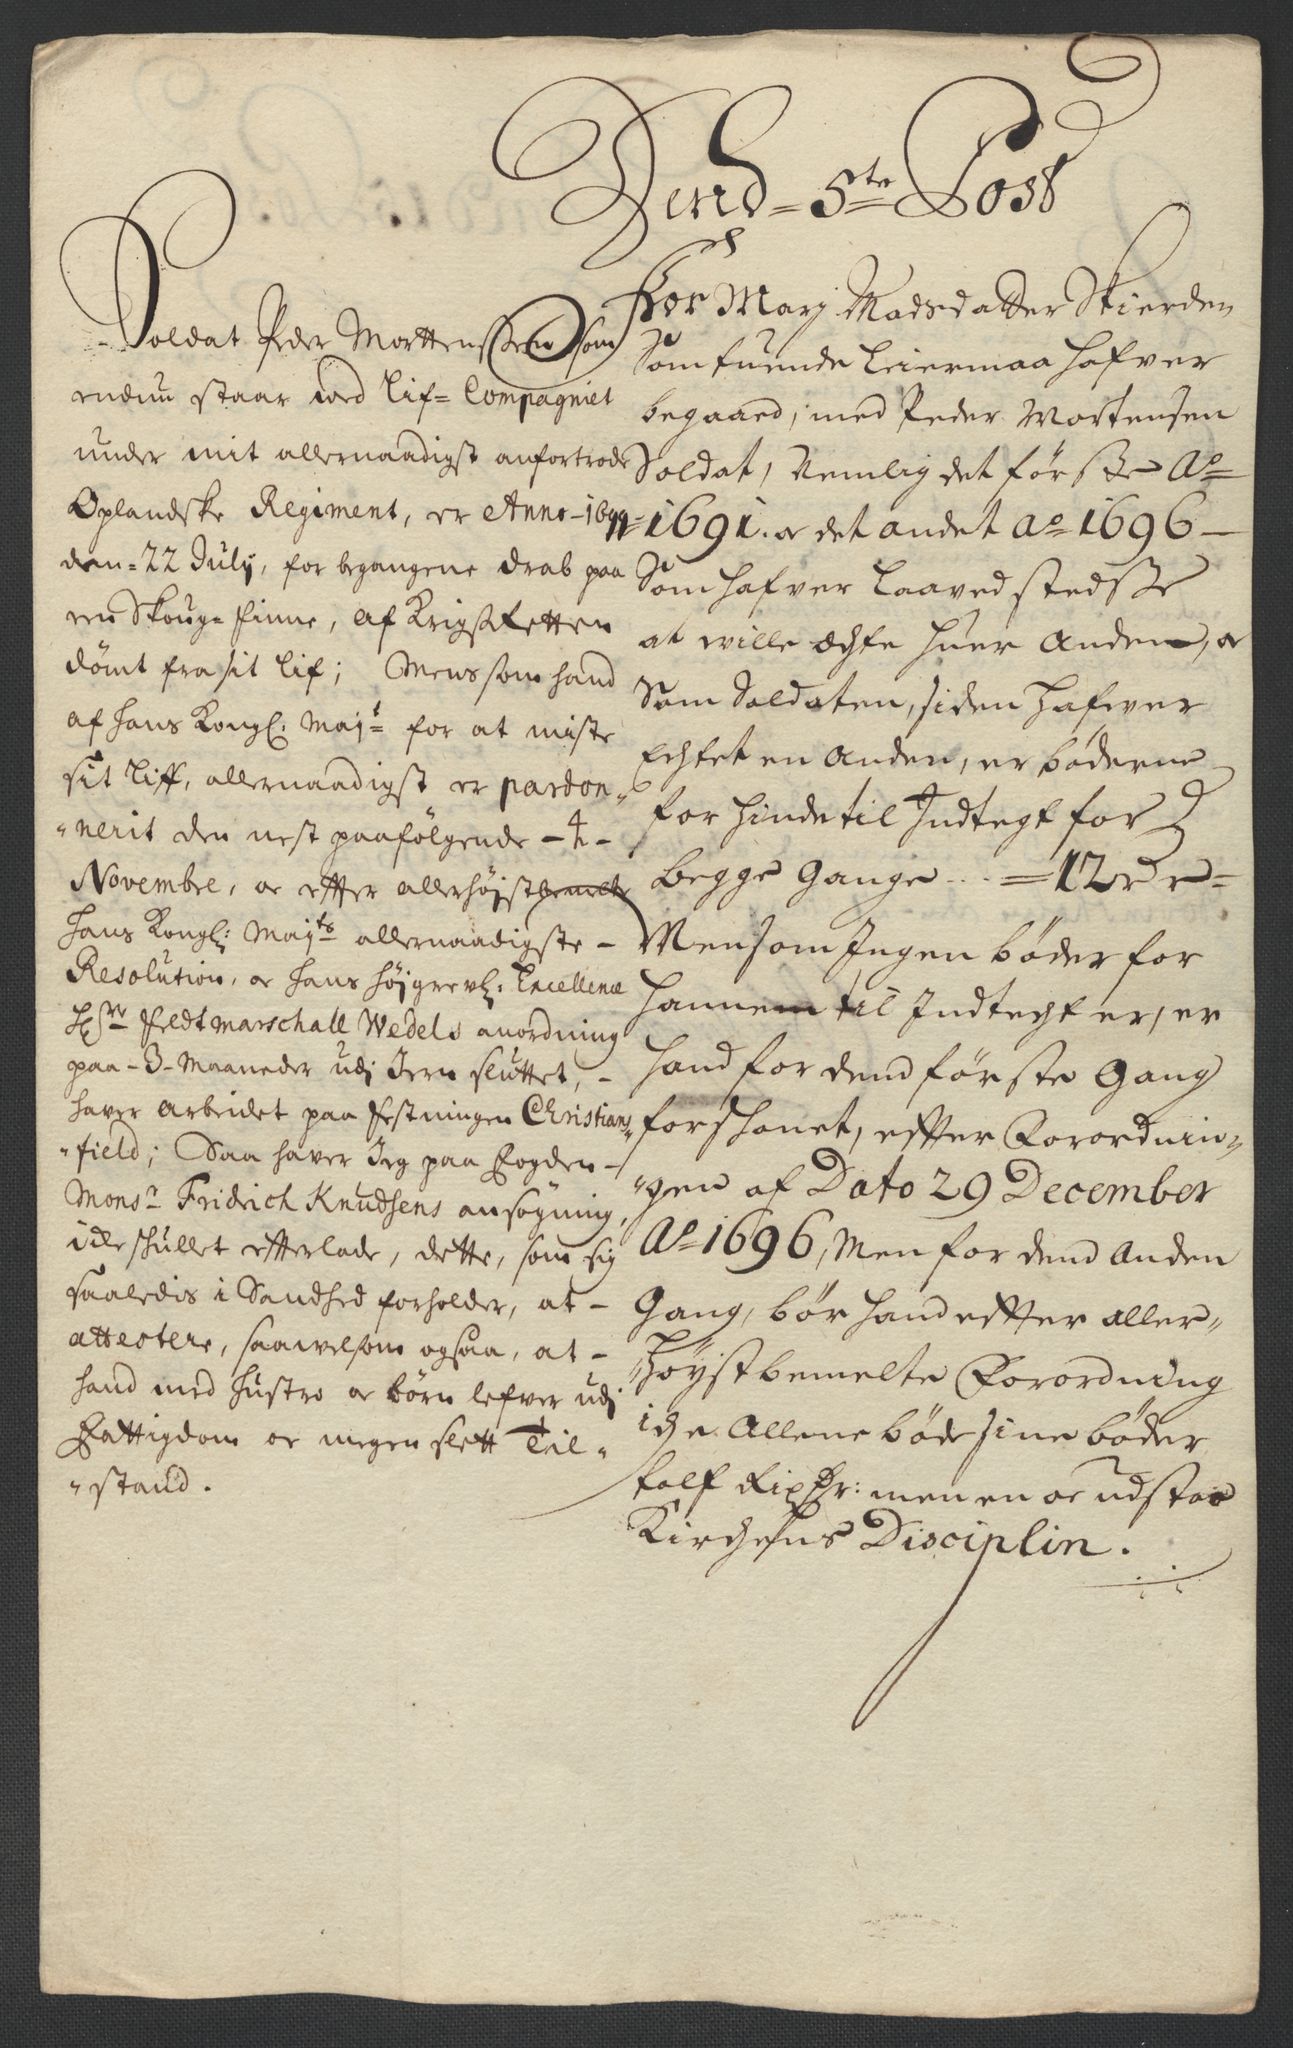 Dend 5te Post
Soldat Peder Mortenssen som
endnu staar ved Lif= Compagniet
under mit allernaadigst anfortrode
Oplandske Regiment, er Anno
den= 22 July, for begangene drab paa
en Skoug= finne, af KrigsRetten
dömt fra sit lif; Mens som hand
af hans Kongl: Majt for at miste
sit Liff, allernaadigst er pardon„
„nerit den nest paafölgende - 4 -
Novembre, oc effter allerhöjstbemelte
hans Kongl: Majts allernaadigste -
Resolution, oc hans höjgrevl: Excellence
Hr Feldtmarschall Wedels anordning
paa - 3 - Maaneder udj Jern sluttet, -
haver arbeidet paa Festningen Christians„
„field; Saa haver Jeg paa Fogden -
Monsr Fridrich Knudsens ansögning,
icke skullet effterlade, dette, som sig
saaledis i Sandhed forholder, at -
attestere, saavelsom ogsaa, at -
hand med hustro oc börn lefver udj
Fattigdom oc megen slett Til„
„stand.
For Marj Madsdatter Skierden
Som tuende Leiermaal hafver
begaaed, med Peder Mortensen
Soldat, Nemlig det förste Ao
1691. oc det andet Ao 1696 -
Som hafver Laaved stedsse
at wille ächte huer Anden, oc
Som Soldaten, siden hafver
Echtet en Anden, er böderne
for hinde til Indtegt for
begge Gange - - - = 12 Rr =
Men som Ingen böder for
hannem til Indtecht er, er
hand for dend förste Gang
forskonet, effter Forordnin„
„gen af Dato 29 December
Ao 1696, Men for dend Anden
Gang, bör hand effter aller„
„höystbemelte Forordning
iche Allene böde sine böder
tolf Rixdr: men en oc udstaa
Kirchens Disciplin.